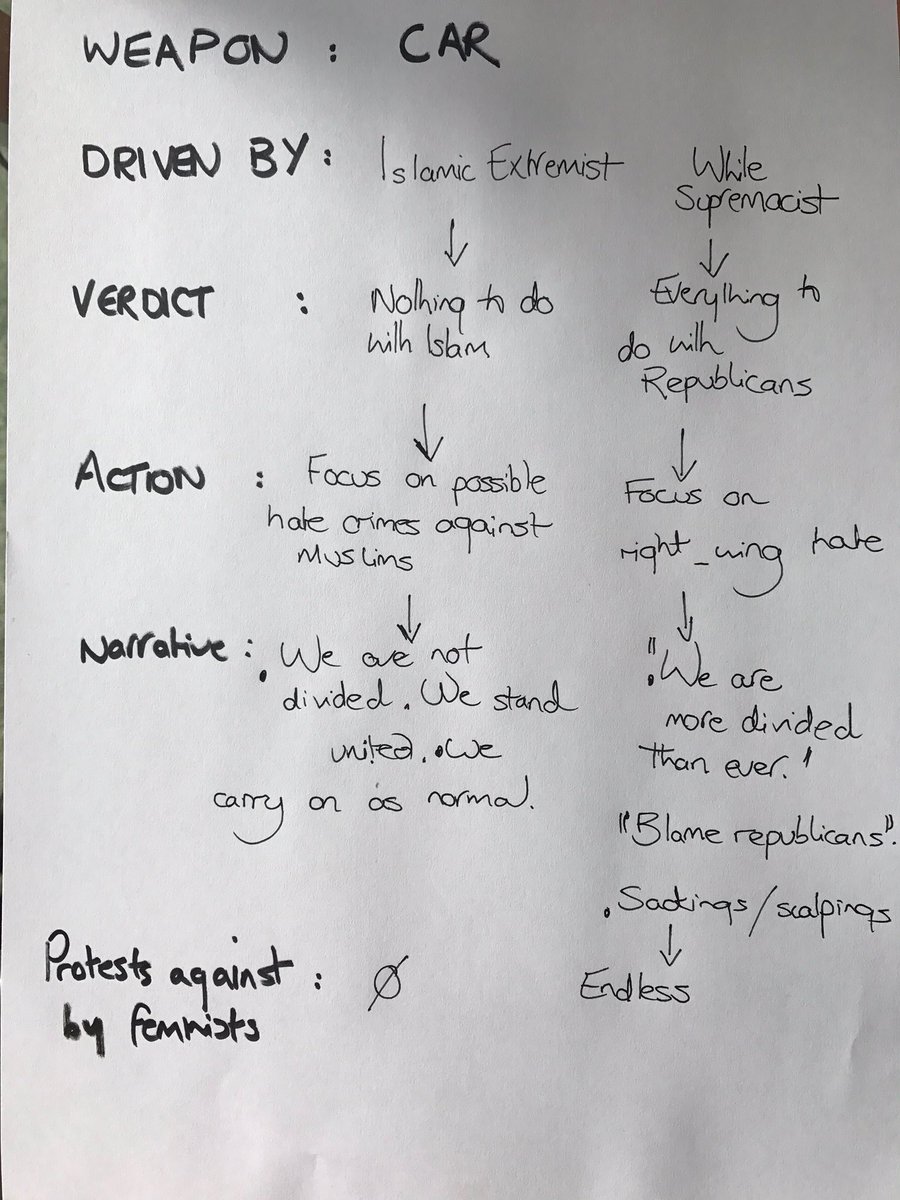 WEAPON : CAR
DRIVEN BY : Islamic Extremist
White
Supremacist
VERDICT : Nothing to do
with Islam
Everything to
do with
Republicans
ACTION : Focus on possible
hate crimes against
Muslims
Focus on
right_wing hate
Narrative : . We are not
divided. We stand
united. . We
carry on as normal.
". We are
more divided
than ever.'
"Blame republicans".
. Sackings/scalpings
Protests against : Ø
by feminists
Endless